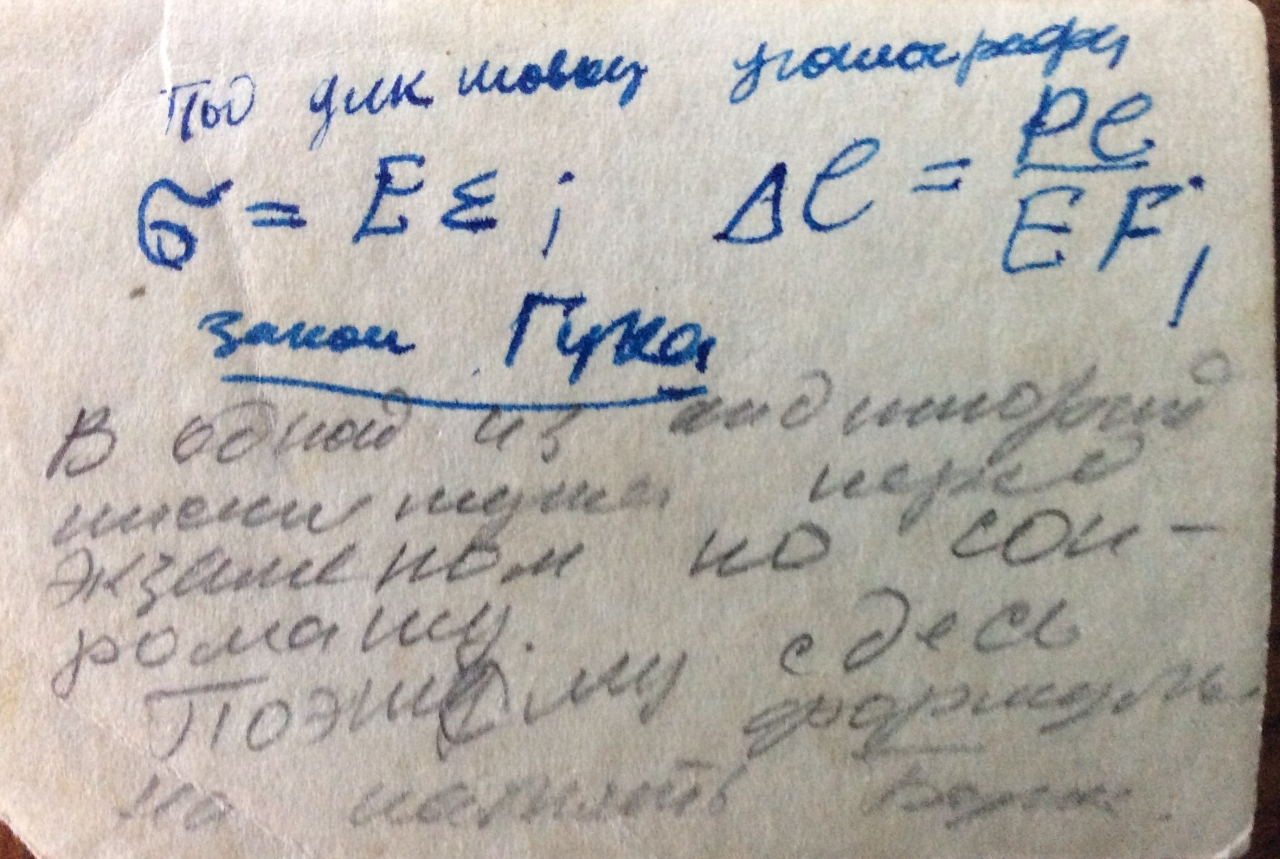 Под диктовку
σ = Eε ; Δl = Pl / EF ;
закон Гука
В одной из аудиторий
института перед
экзаменом по соп-
ромату.
Поэтому сдесь
формулы
на память